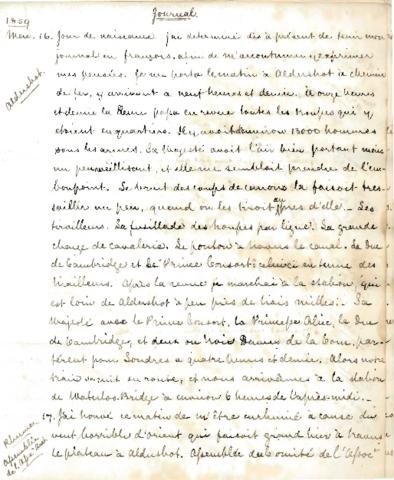 Journal
1859
Mai. 16. Jour de naissance j'ai determiné dès à présent de tenir mon
journal en françois, afin de m'accoutumer à exprimer
mes pensées. Je me portai le matin à Aldershot à chemin
Aldershot.
de fer, y arrivant à neuf heures et demie. A onze heures
et demie la Reine passa en revue toutes les troupes qui y
etoient en quartiers. Il y avoit environ 13000 hommes
sous les armes. Sa Majesté avoit l'air bien portant mais
un peu vieillissant, et elle me sembloit prendre de l'em-
bonpoint. Le bruit des coups de canons la faisoit tres-
saillir un peu, quand on les tiroit auprès d'elle. Les
tirailleurs. La fusillade des troupes par ligne. La grande
charge de cavalerie. Le ponton à travers le canal. Le Duc
de Cambridge et le Prince Consort, celui ci en tenue des
tirailleurs. Après la revue je marchai à la station, qui
est loin de Aldershot à peu près de trois milles. Sa
Majesté avec le Prince Consort, la Princesse Alice, le Duc
de Cambridge, et deux ou trois Dames de la Cour, par-
tèrent pour Londres a quatre heures et demie. Alors notre
train se mit en route, et nous arrivâmes à la station
de Waterloo Bridge à environ 6 heures de l'après-midi.
17. J'ai trouvé ce matin de m'être enrhumé à cause du
Rhume
vent horrible d'orient qui faisoit grand hier à travers
Assemblée
le plateau à Aldershot. Assemblée du Comité de l'"Assoc.n